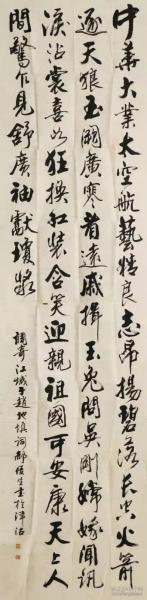 中华大业太空航艺精良志昂扬碧落长空火箭
逐天狼玉阙广寒着远戚揖玉兔问吴刚嫦娥闻讯
泪沾裳喜如狂换红装含笑迎亲祖国可安康天上人
间惊乍见舒广袖献琼浆
调寄江城子赵地慎词郝侯生书于津沽